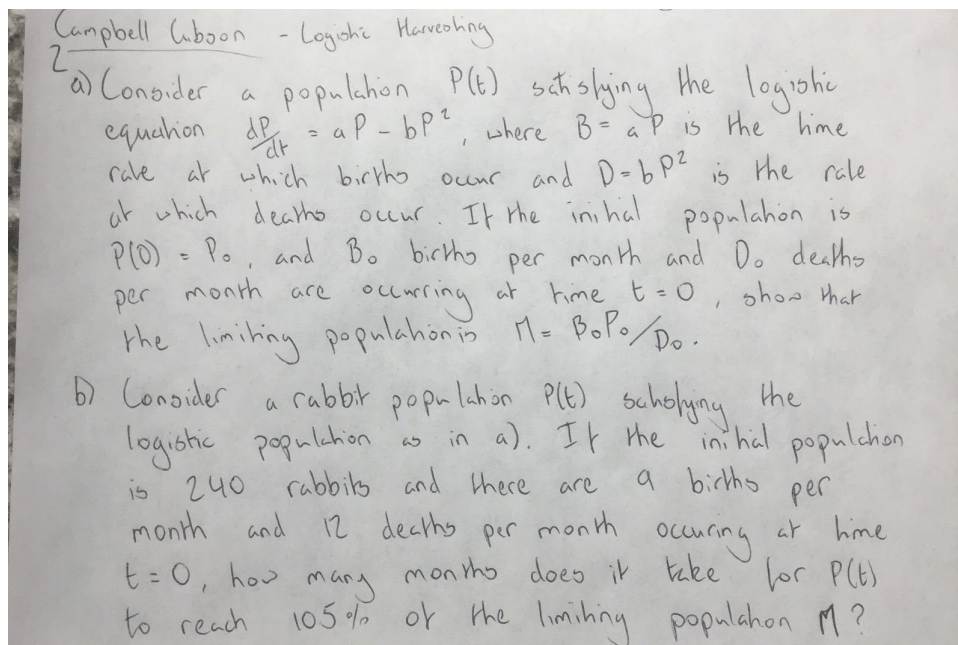 Campbell Cubson - Logistic Harvesting
2
a) Consider a population P(t) satisfying the logistic
equation dP/dt = aP - bP², where B = aP is the time
rate at which births occur and D = bP² is the rate
at which deaths occur. If the initial population is
P(0) = P₀, and B₀ births per month and D₀ deaths
per month are occurring at time t = 0, show that
the limiting population is M = B₀P₀/D₀.
b) Consider a rabbit population P(t) satisfying the
logistic population as in a). If the initial population
is 240 rabbits and there are 9 births per
month and 12 deaths per month occuring at time
t = 0, how many months does it take for P(t)
to reach 105% of the limiting population M?